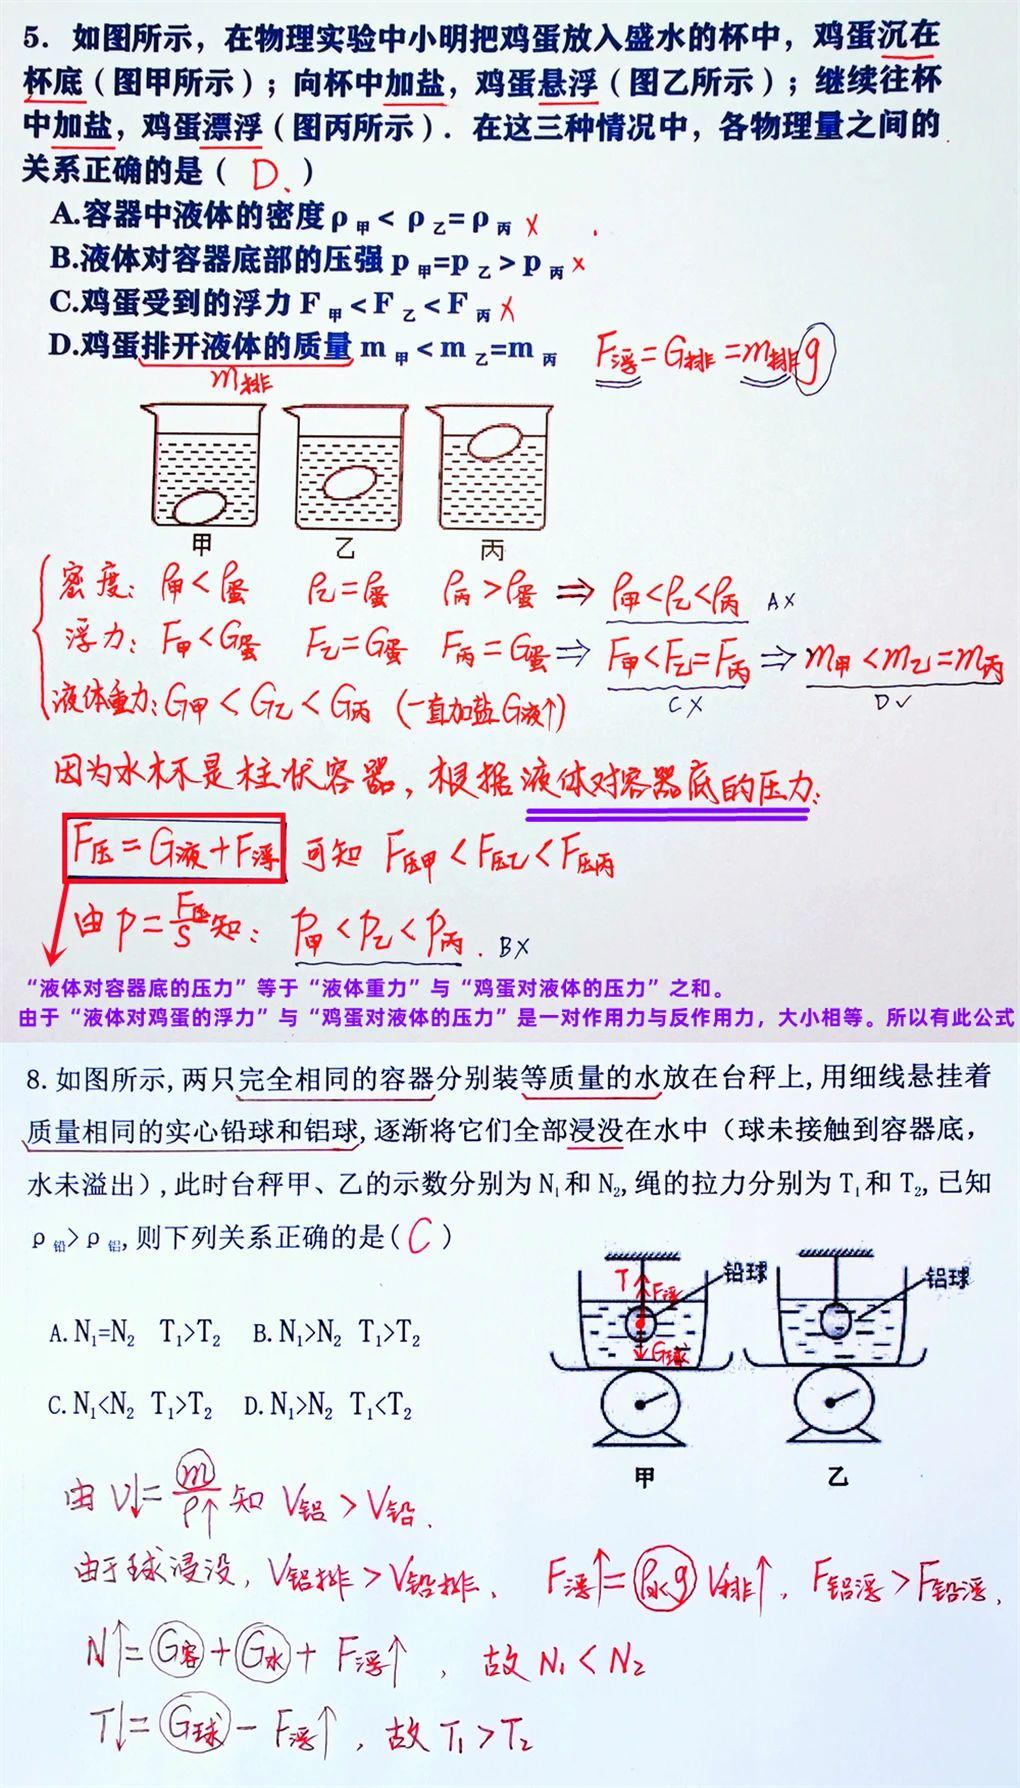 5. 如图所示，在物理实验中小明把鸡蛋放入盛水的杯中，鸡蛋沉在
杯底（图甲所示）；向杯中加盐，鸡蛋悬浮（图乙所示）；继续往杯
中加盐，鸡蛋漂浮（图丙所示）．在这三种情况中，各物理量之间的
关系正确的是（ D、）
A.容器中液体的密度ρ甲< ρ乙=ρ丙 ×
B.液体对容器底部的压强 p甲=p乙>p丙 ×
C.鸡蛋受到的浮力 F甲<F乙<F丙 ×
D.鸡蛋排开液体的质量 m甲<m乙=m丙
m排
F浮=G排=m排g
甲 乙 丙
密度: ρ甲<ρ蛋 ρ乙=ρ蛋 ρ丙>ρ蛋 ⇒ ρ甲<ρ乙<ρ丙 A×
浮力: F甲<G蛋 F乙=G蛋 F丙=G蛋 ⇒ F甲<F乙=F丙 ⇒ m甲<m乙=m丙
C× D✓
液体重力: G甲<G乙<G丙 (一直加盐G液↑)
因为水杯不是柱状容器，根据液体对容器底的压力:
F压=G液+F浮 可知 F压甲<F压乙<F压丙
由 P=F压/S 知: P甲<P乙<P丙. B×
“液体对容器底的压力”等于“液体重力”与“鸡蛋对液体的压力”之和。
由于“液体对鸡蛋的浮力”与“鸡蛋对液体的压力”是一对作用力与反作用力，大小相等。所以有此公式
8. 如图所示,两只完全相同的容器分别装等质量的水放在台秤上,用细线悬挂着
质量相同的实心铅球和铝球,逐渐将它们全部浸没在水中（球未接触到容器底，
水未溢出）,此时台秤甲、乙的示数分别为 N₁和 N₂,绳的拉力分别为 T₁和 T₂,已知
ρ铅>ρ铝,则下列关系正确的是( C )
A. N₁=N₂ T₁>T₂ B. N₁>N₂ T₁>T₂
C. N₁<N₂ T₁>T₂ D. N₁>N₂ T₁<T₂
T F浮 G球 铅球 铝球
甲 乙
由 V↓=m/ρ↑ 知 V铝>V铅.
由于球浸没, V铝排>V铅排, F浮↑=ρ水g V排↑, F铝浮>F铅浮,
N↑=G容+G水+F浮↑, 故 N₁<N₂
T↓=G球-F浮↑, 故 T₁>T₂